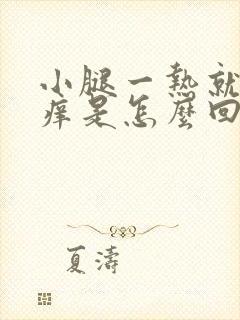 小腿一熱就
痒是怎麼回
夏濤